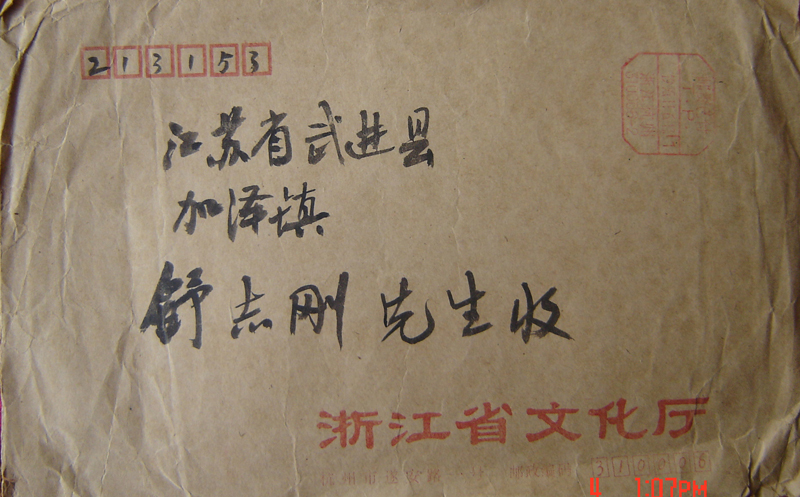 213153
江苏省武进县
加泽镇
舒志刚 先生收
浙江省文化厅
杭州市 邮政编码 310006
4 1:07PM